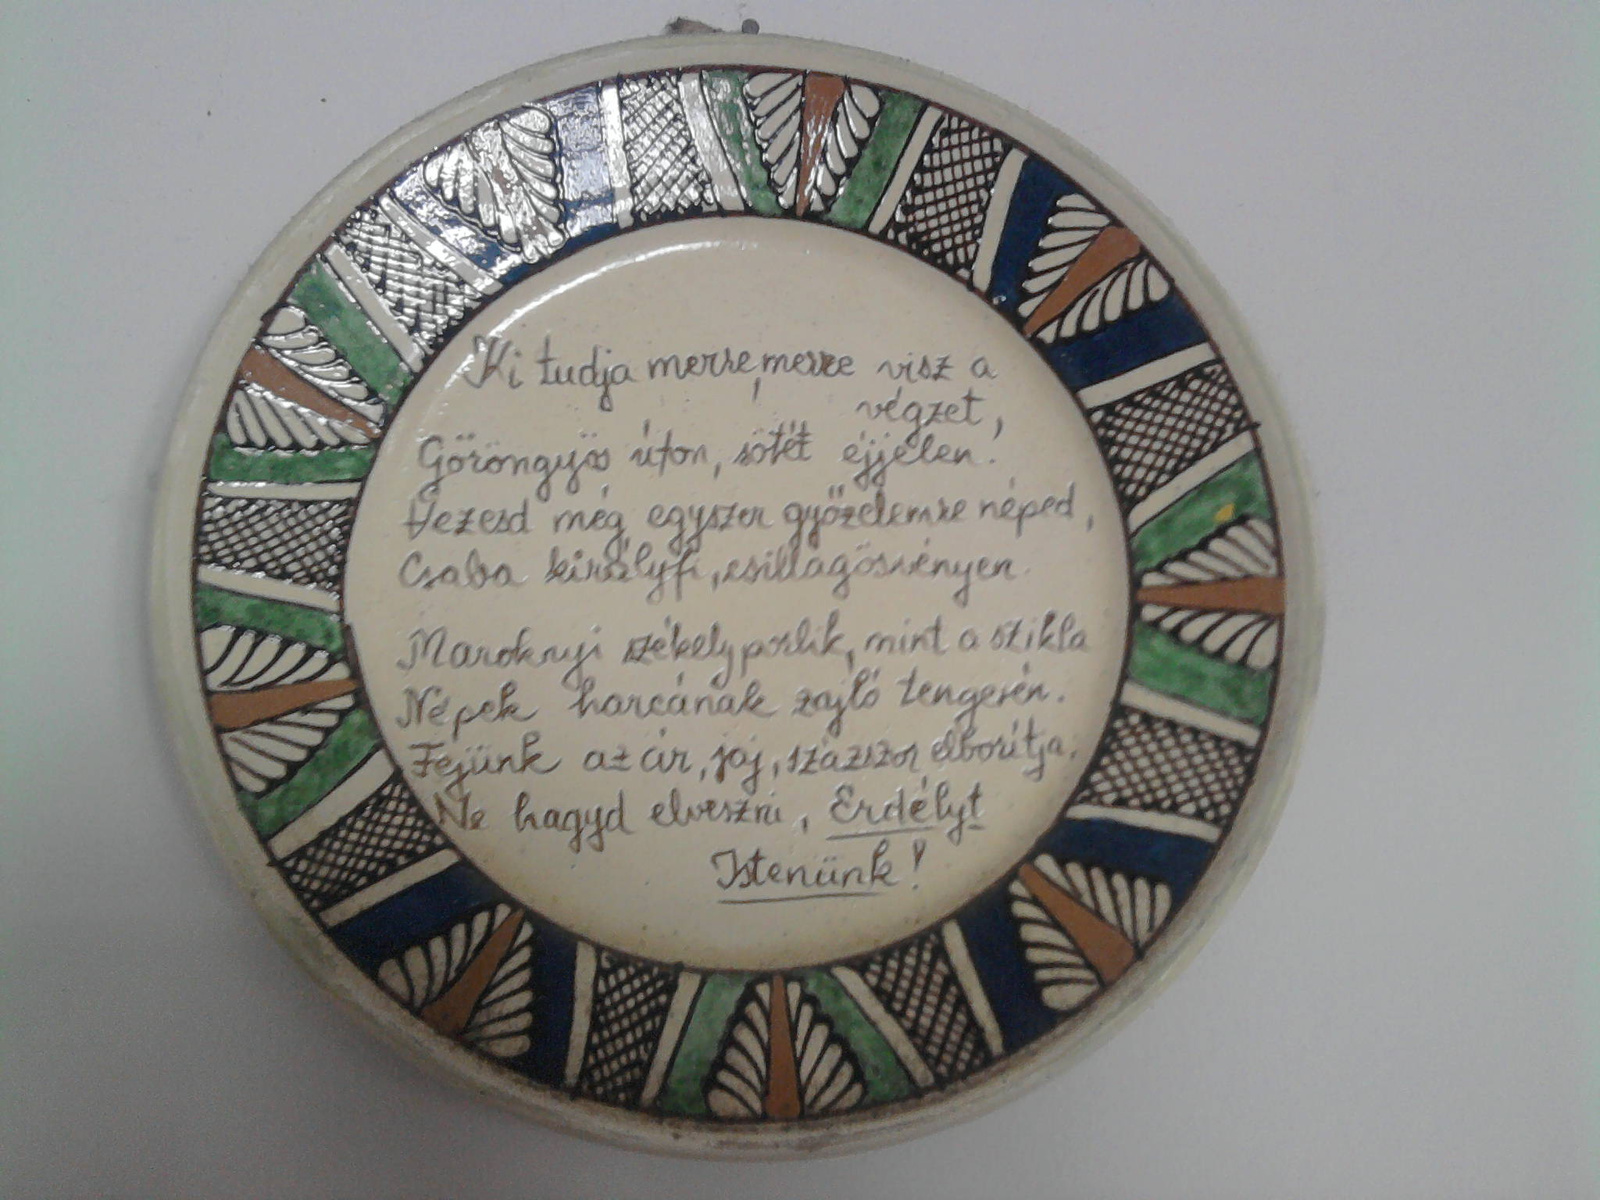 Ki tudja merre, merre visz a
végzet,
Göröngyös úton, sötét éjjelen.
Vezesd még egyszer győzelemre néped,
Csaba királyfi, csillagösvényen.
Maroknyi székely porlik, mint a szikla
Népek harcának zajló tengerén.
Fejünk az ár, jaj, százszor elborítja.
Ne hagyd elveszni, Erdélyt
Istenünk!